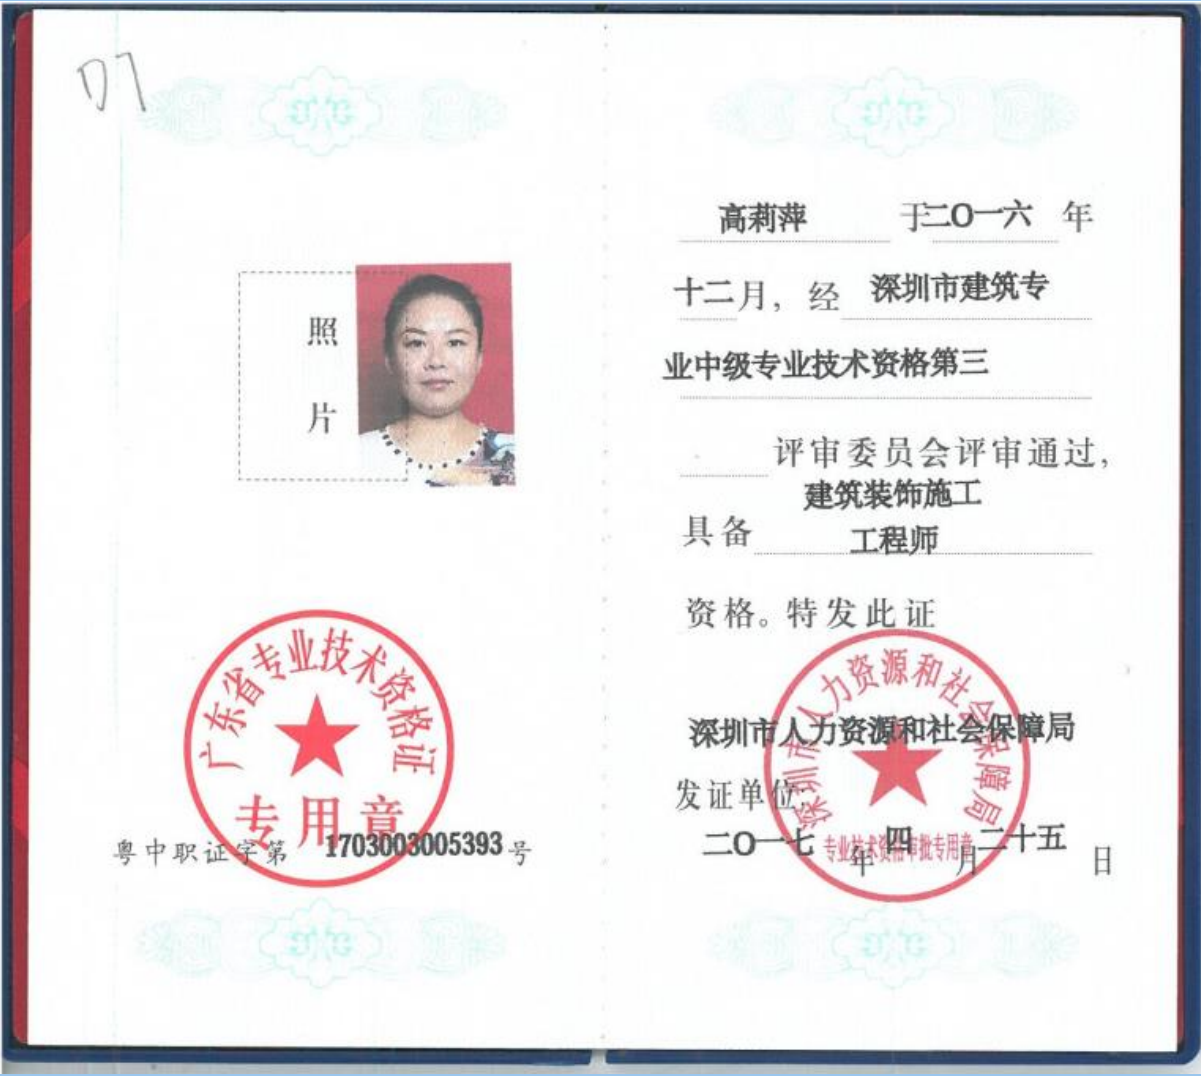 07
照
片
广东省专业技术资格证
专用章
粤中职证字第 1703003005393 号
高莉萍 于二〇一六 年
十二月，经 深圳市建筑专
业中级专业技术资格第三
评审委员会评审通过，
建筑装饰施工
具备 工程师
资格。特发此证
深圳市人力资源和社会保障局
深圳市人力资源和社会保障局
发证单位:
二〇一七 年 四 月 二十五 日
专业技术资格审批专用章